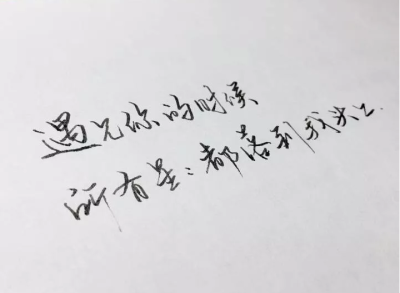 遇见你的时候
所有星:都落到我头上